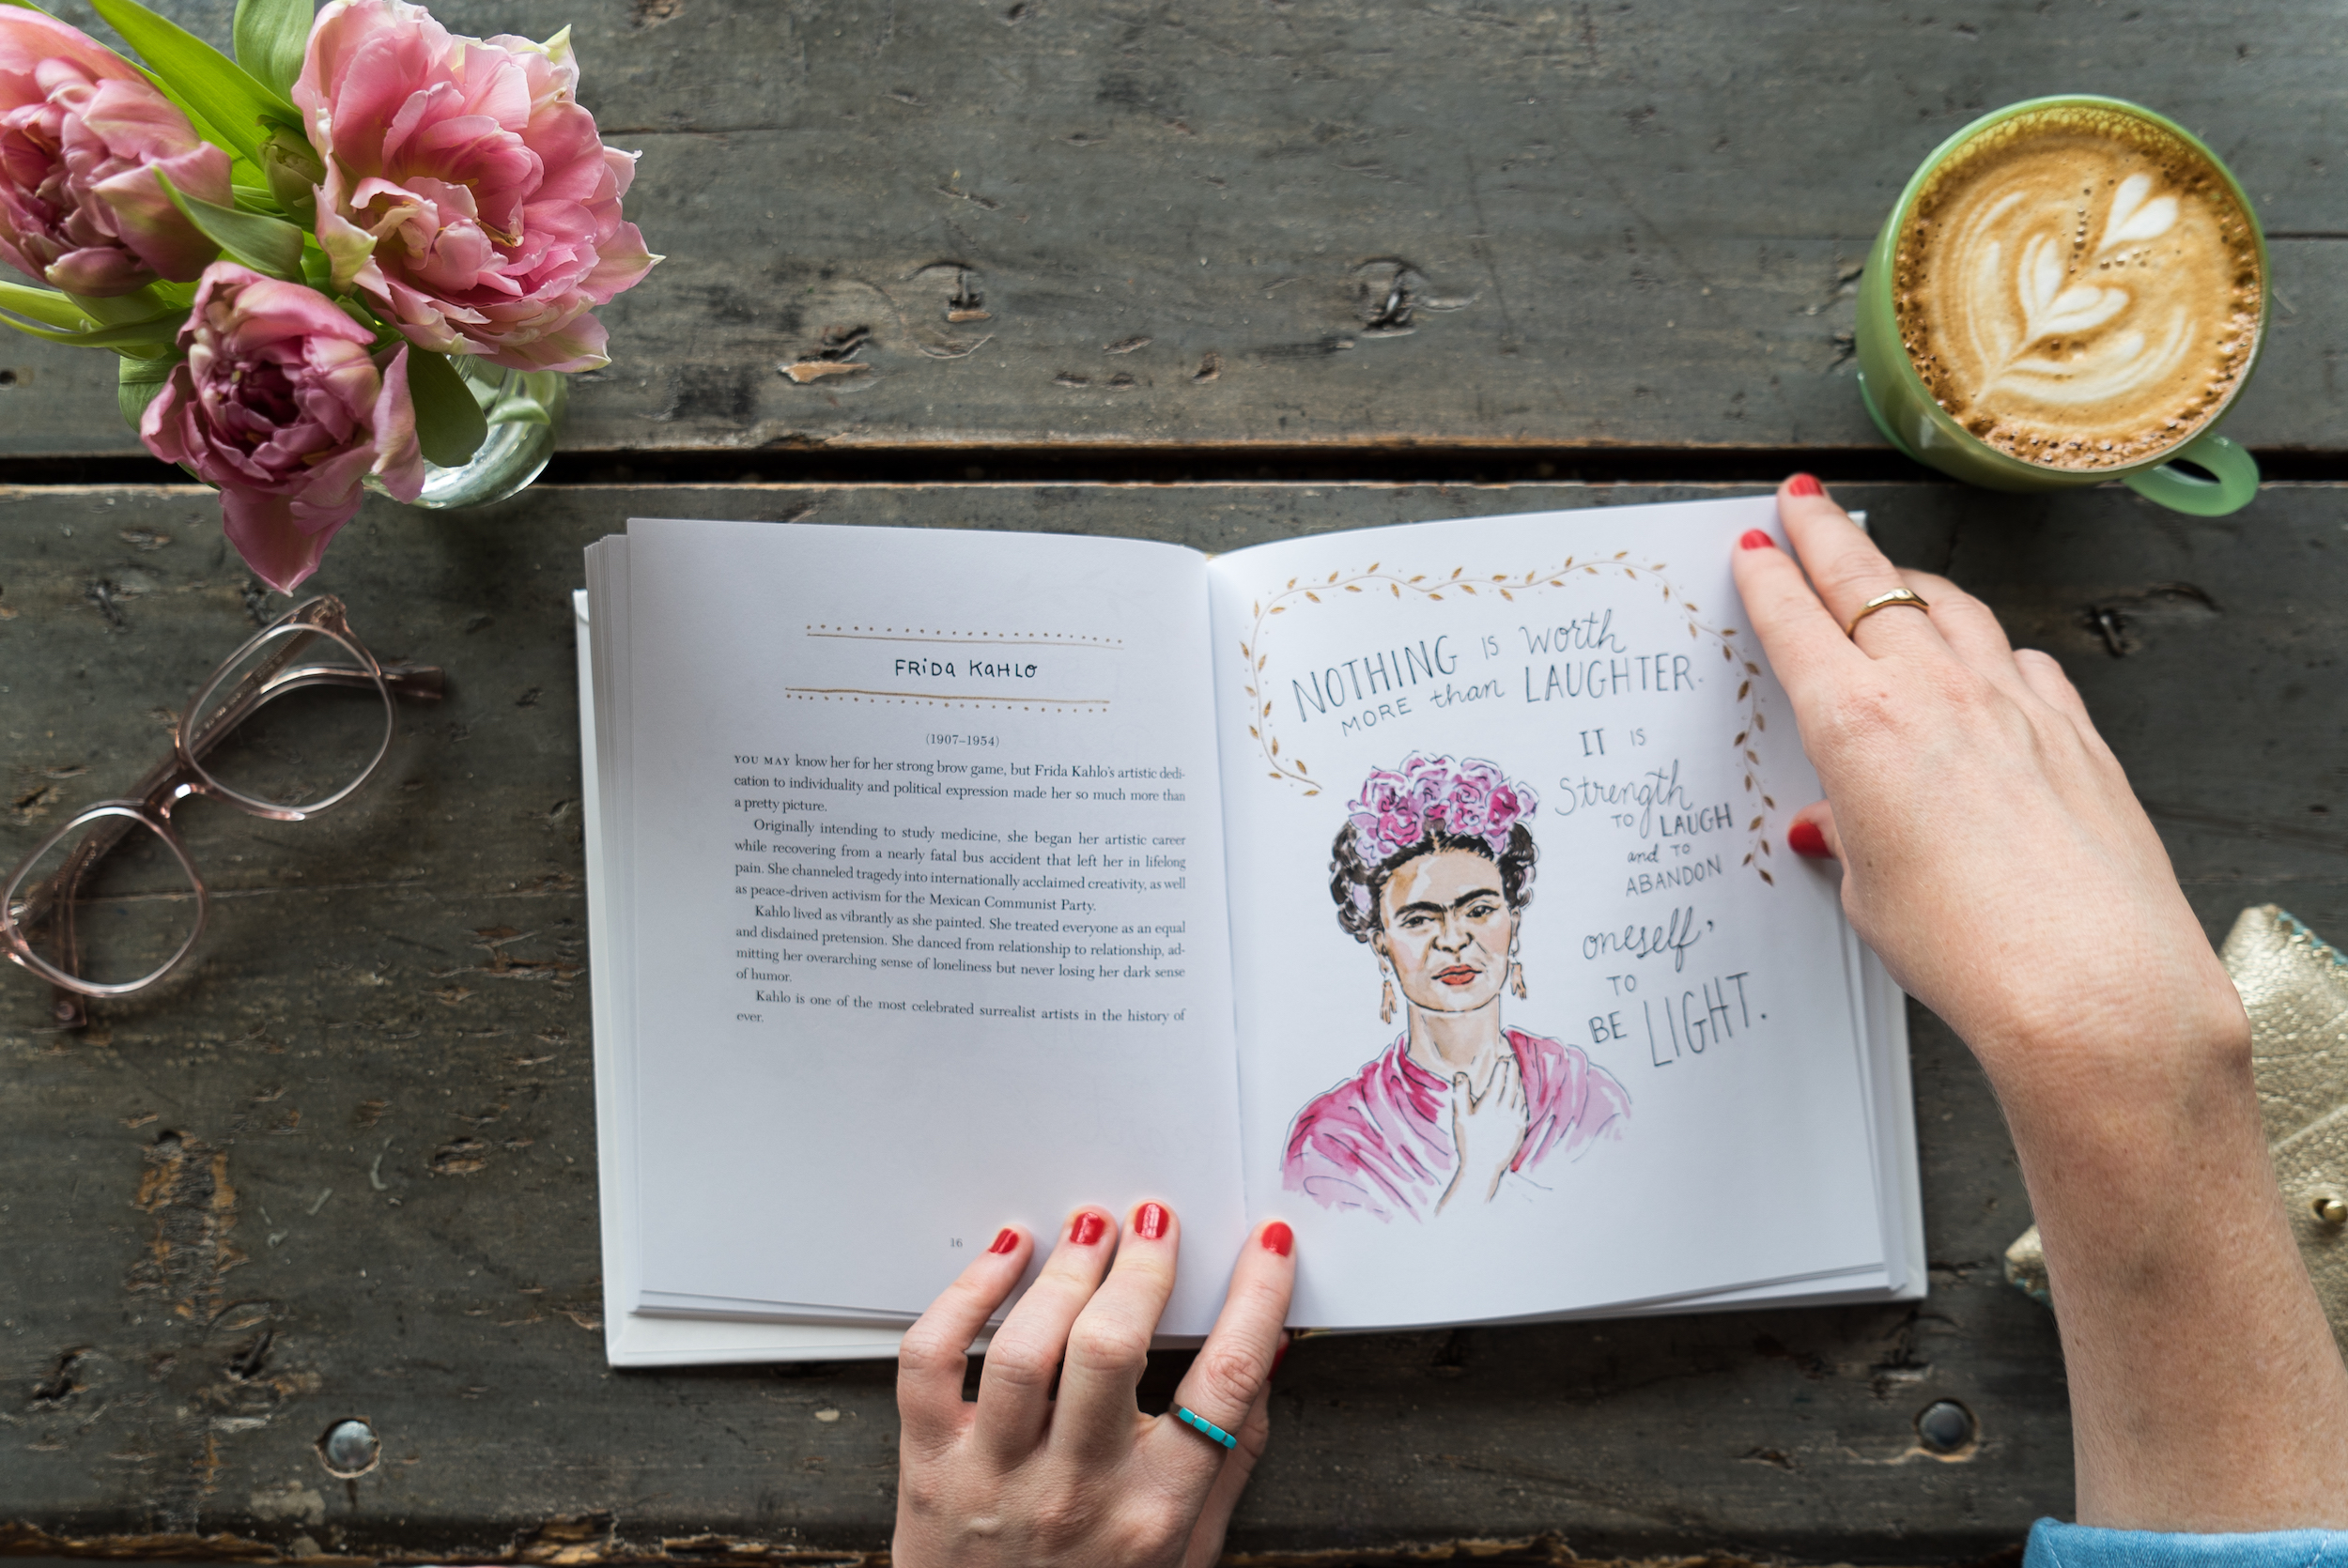 FRiDa KaHLO
(1907–1954)
YOU MAY know her for her strong brow game, but Frida Kahlo's artistic dedi-
cation to individuality and political expression made her so much more than
a pretty picture.
Originally intending to study medicine, she began her artistic career
while recovering from a nearly fatal bus accident that left her in lifelong
pain. She channeled tragedy into internationally acclaimed creativity, as well
as peace-driven activism for the Mexican Communist Party.
Kahlo lived as vibrantly as she painted. She treated everyone as an equal
and disdained pretension. She danced from relationship to relationship, ad-
mitting her overarching sense of loneliness but never losing her dark sense
of humor.
Kahlo is one of the most celebrated surrealist artists in the history of
ever.
16
NOTHING IS worth
MORE than LAUGHTER.
IT IS
Strength
TO LAUGH
and TO
ABANDON
oneself,
TO
BE LIGHT.